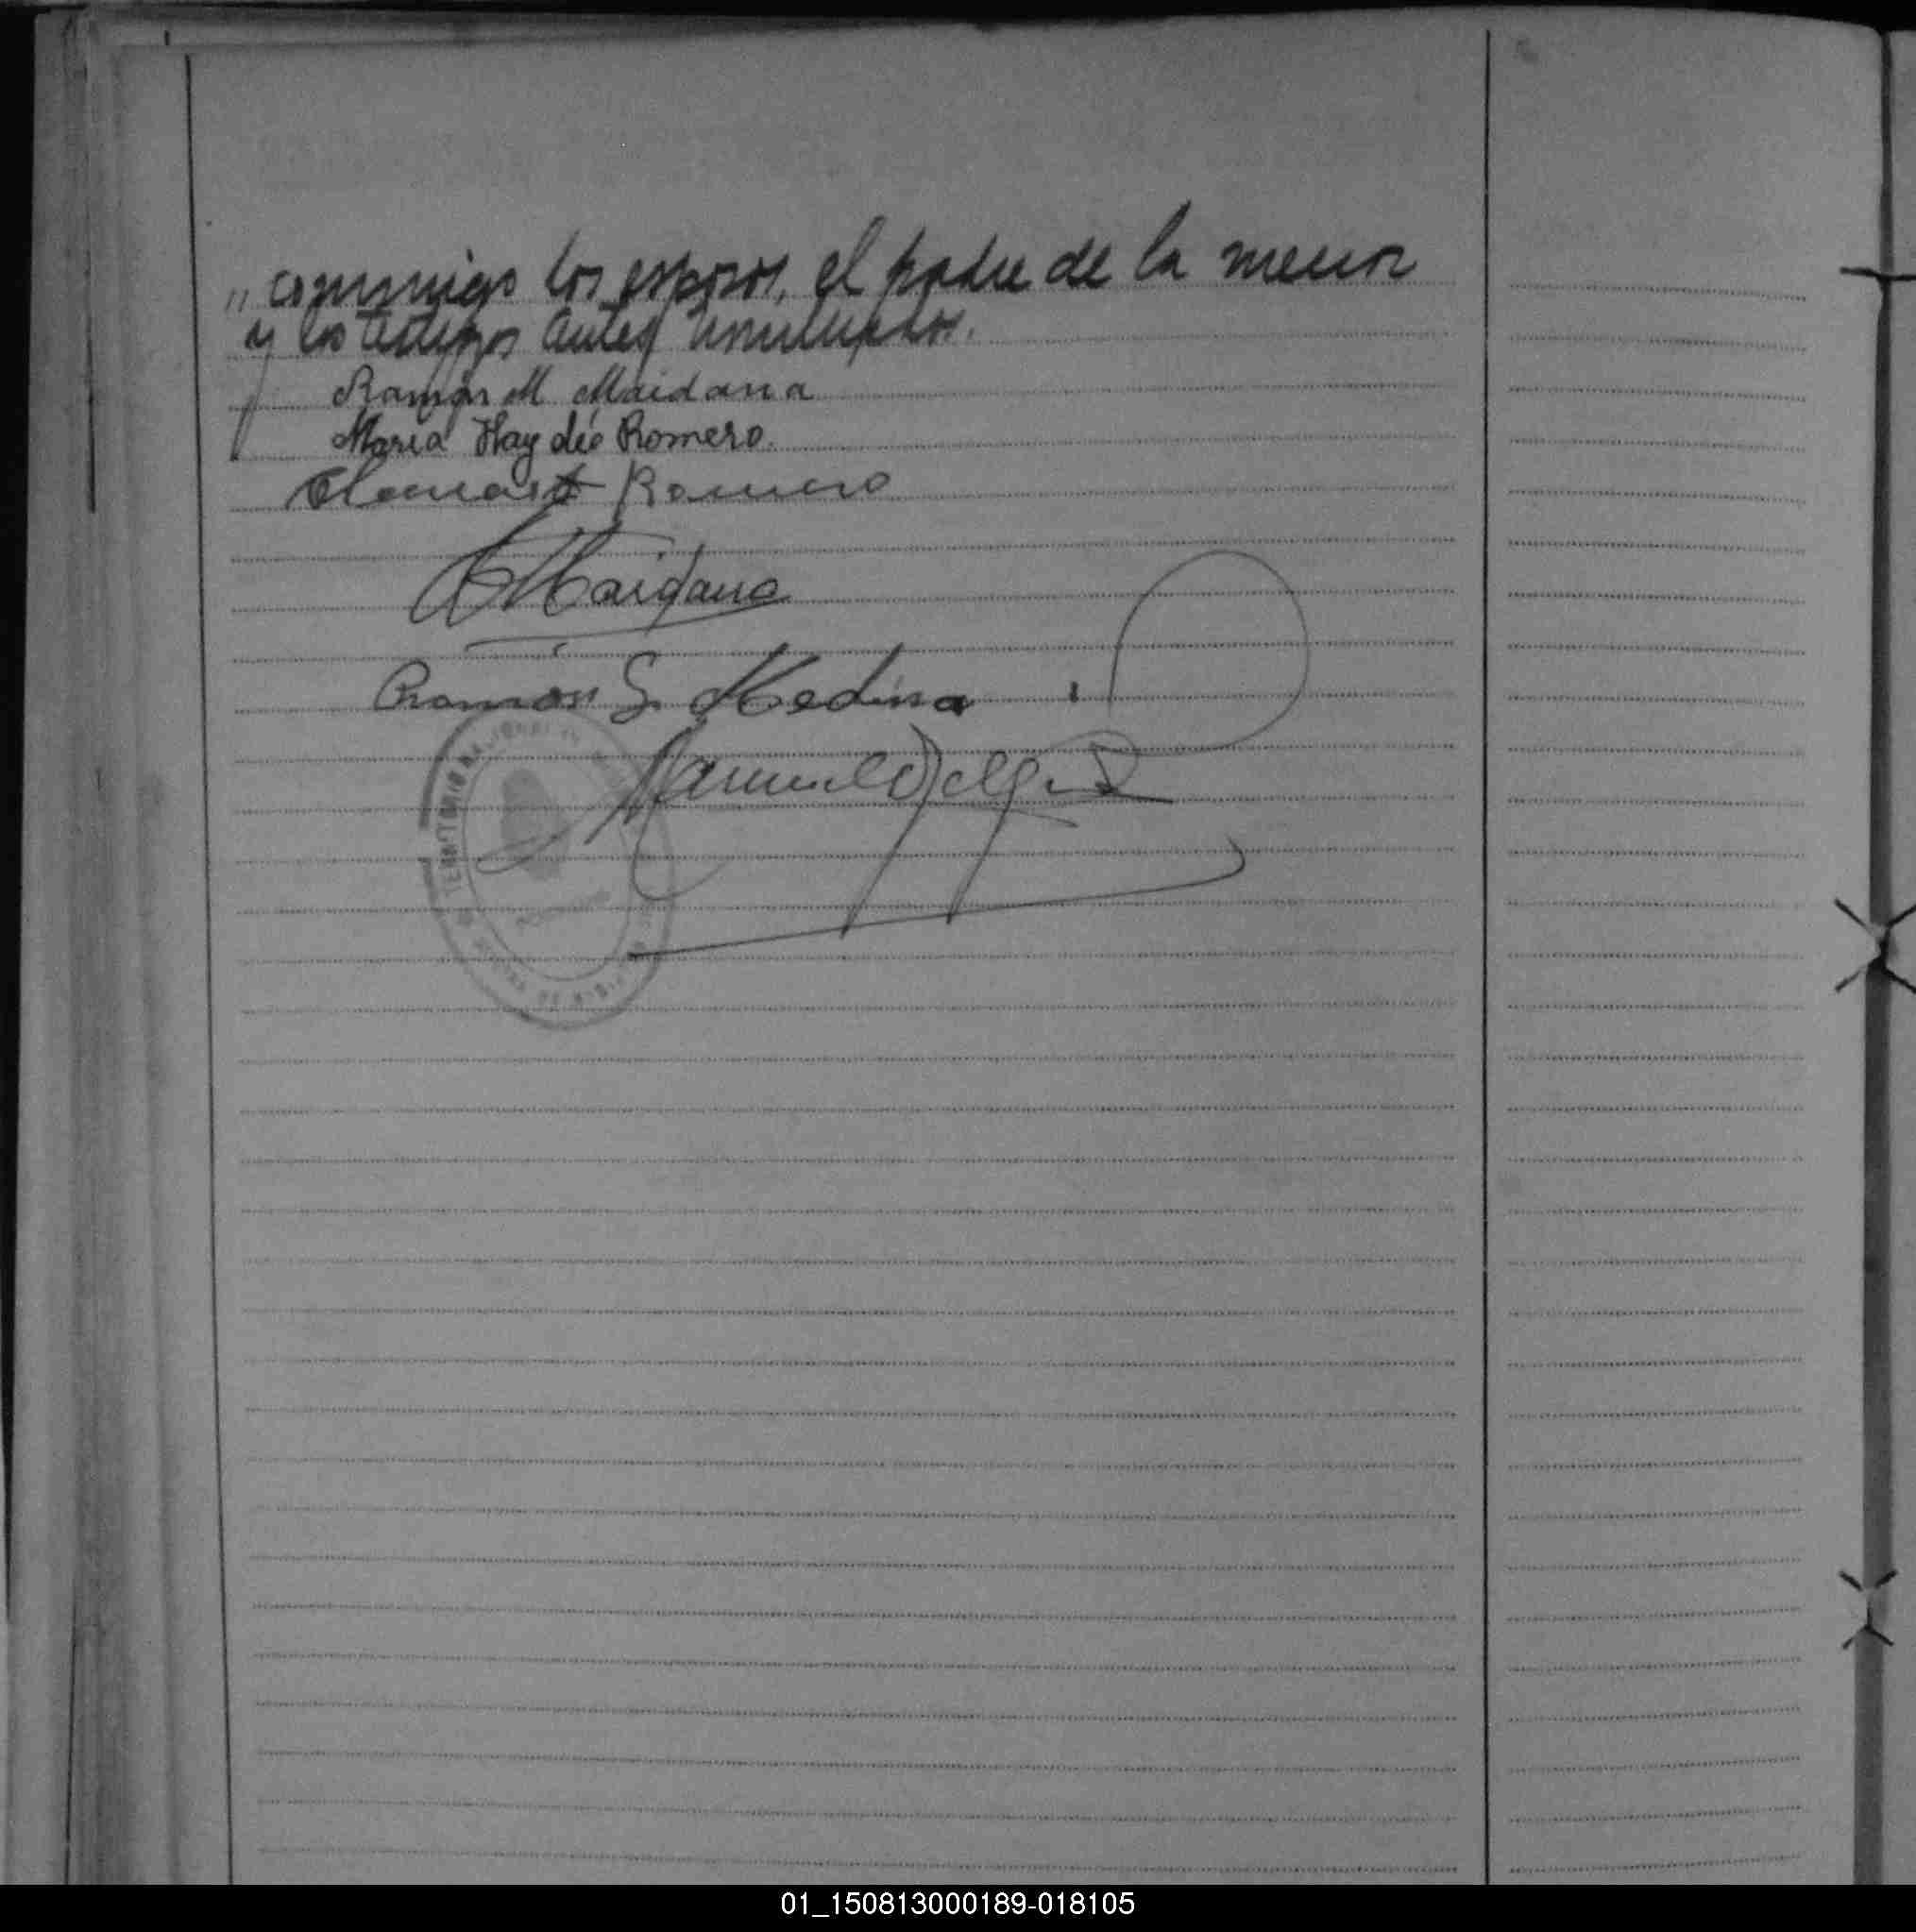 " conmigo los esposos, el padre de la menor
y los testigos antes nombrados.
Ramón M Maidana
María Haydée Romero.
Romero
Maidana
Ramón S. Medina
Manuel Delgado
TERRITORIO NACIONAL
01_150813000189-018105